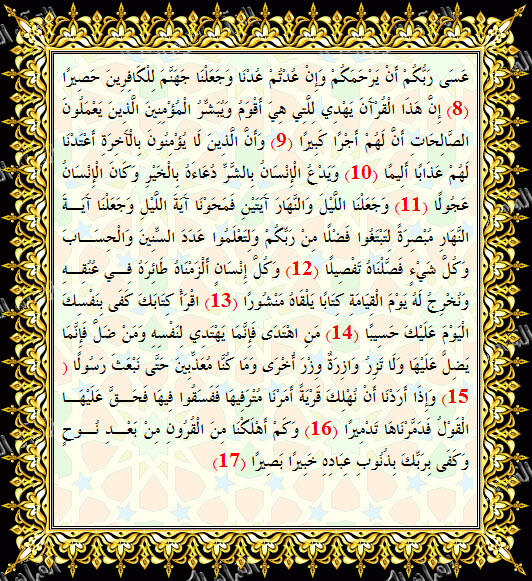 عَسَى رَبُّكُمْ أَنْ يَرْحَمَكُمْ وَإِنْ عُدْتُمْ عُدْنَا وَجَعَلْنَا جَهَنَّمَ لِلْكَافِرِينَ حَصِيرًا
(8) إِنَّ هَذَا الْقُرْآنَ يَهْدِي لِلَّتِي هِيَ أَقْوَمُ وَيُبَشِّرُ الْمُؤْمِنِينَ الَّذِينَ يَعْمَلُونَ
الصَّالِحَاتِ أَنَّ لَهُمْ أَجْرًا كَبِيرًا (9) وَأَنَّ الَّذِينَ لَا يُؤْمِنُونَ بِالْآخِرَةِ أَعْتَدْنَا
لَهُمْ عَذَابًا أَلِيمًا (10) وَيَدْعُ الْإِنْسَانُ بِالشَّرِّ دُعَاءَهُ بِالْخَيْرِ وَكَانَ الْإِنْسَانُ
عَجُولًا (11) وَجَعَلْنَا اللَّيْلَ وَالنَّهَارَ آيَتَيْنِ فَمَحَوْنَا آيَةَ اللَّيْلِ وَجَعَلْنَا آيَـــةَ
النَّهَارِ مُبْصِرَةً لِتَبْتَغُوا فَضْلًا مِنْ رَبِّكُمْ وَلِتَعْلَمُوا عَدَدَ السِّنِينَ وَالْحِسَـــابَ
وَكُلَّ شَيْءٍ فَصَّلْنَاهُ تَفْصِيلًا (12) وَكُلَّ إِنْسَانٍ أَلْزَمْنَاهُ طَائِرَهُ فِـــي عُنُقِـــهِ
وَنُخْرِجُ لَهُ يَوْمَ الْقِيَامَةِ كِتَابًا يَلْقَاهُ مَنْشُورًا (13) اقْرَأْ كِتَابَكَ كَفَى بِنَفْسِكَ
الْيَوْمَ عَلَيْكَ حَسِيبًا (14) مَنِ اهْتَدَى فَإِنَّمَا يَهْتَدِي لِنَفْسِهِ وَمَنْ ضَلَّ فَإِنَّمَا
يَضِلُّ عَلَيْهَا وَلَا تَزِرُ وَازِرَةٌ وِزْرَ أُخْرَى وَمَا كُنَّا مُعَذِّبِينَ حَتَّى نَبْعَثَ رَسُولًا (
15) وَإِذَا أَرَدْنَا أَنْ نُهْلِكَ قَرْيَةً أَمَرْنَا مُتْرَفِيهَا فَفَسَقُوا فِيهَا فَحَقَّ عَلَيْهَـــا
الْقَوْلُ فَدَمَّرْنَاهَا تَدْمِيرًا (16) وَكَمْ أَهْلَكْنَا مِنَ الْقُرُونِ مِنْ بَعْـــدِ نُـــوحٍ
وَكَفَى بِرَبِّكَ بِذُنُوبِ عِبَادِهِ خَبِيرًا بَصِيرًا (17)